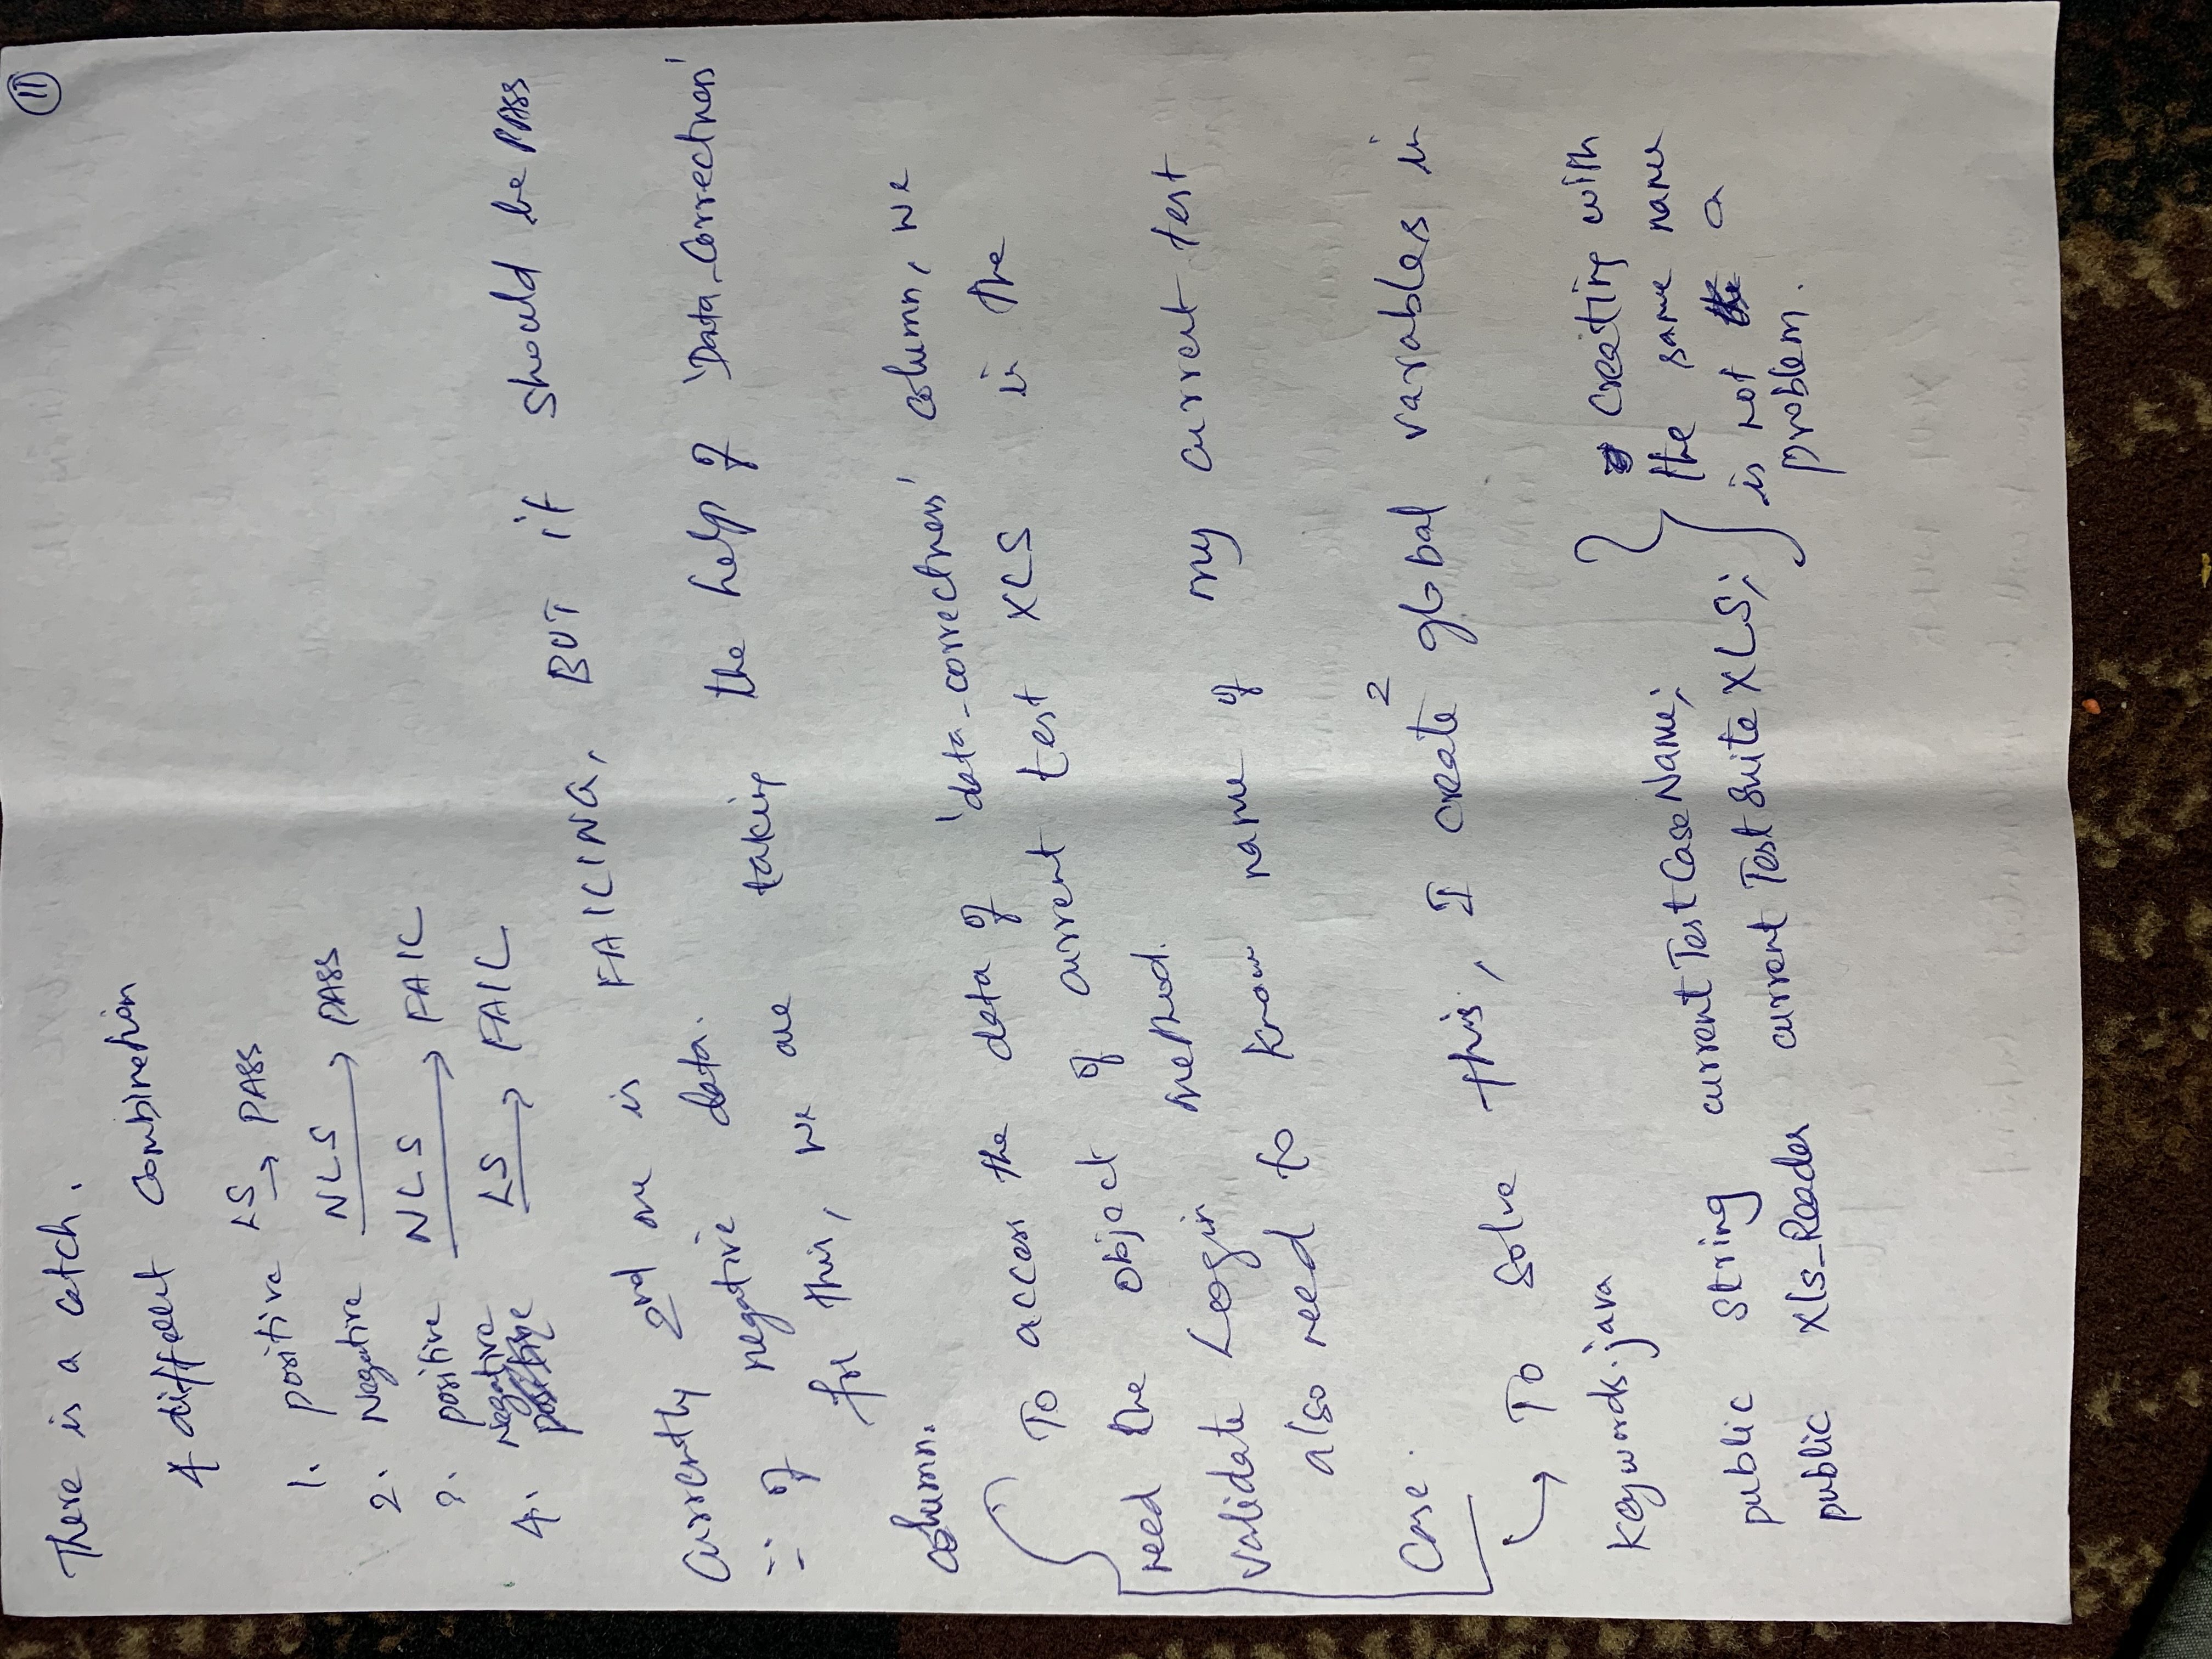 11
There is a catch.
4 different Combination
1. positive LS → PASS
2. Negative NLS → PASS
3. positive NLS → FAIL
4. Negative LS → FAIL
Currently 2nd one is FAILING, BUT it should be PASS
∵ of negative data.
for this, we are taking the help of 'Data_Correctness'
column.
To access the data of 'data_correctness' column, we
need the object of current test XLS in the
validate Login method.
also need to know name of my current test
Case.
→ To solve this, I create 2 global variables in
Keywords.java
public String currentTestCaseName;
public XLS_Reader currentTestSuiteXLS;
} creating with
the same name
is not a
problem.